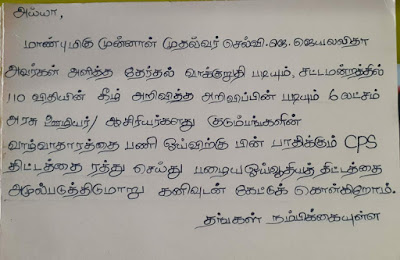 அய்யா,
மாண்புமிகு முன்னாள் முதல்வர் செல்வி.ஜெ.ஜெயலலிதா
அவர்கள் அளித்த தேர்தல் வாக்குறுதி படியும், சட்டமன்றத்தில்
110 விதியின் கீழ் அறிவித்த அறிவிப்பின் படியும் 6 லட்சம்
அரசு ஊழியர்/ ஆசிரியர்களது குடும்பங்களின்
வாழ்வாதாரத்தை பணி ஓய்விற்கு பின் பாதிக்கும் CPS
திட்டத்தை ரத்து செய்து பழைய ஓய்வூதியத் திட்டத்தை
அமுல்படுத்திடுமாறு கனிவுடன் கேட்டுக் கொள்கிறோம்.
தங்கள் நம்பிக்கையுள்ள